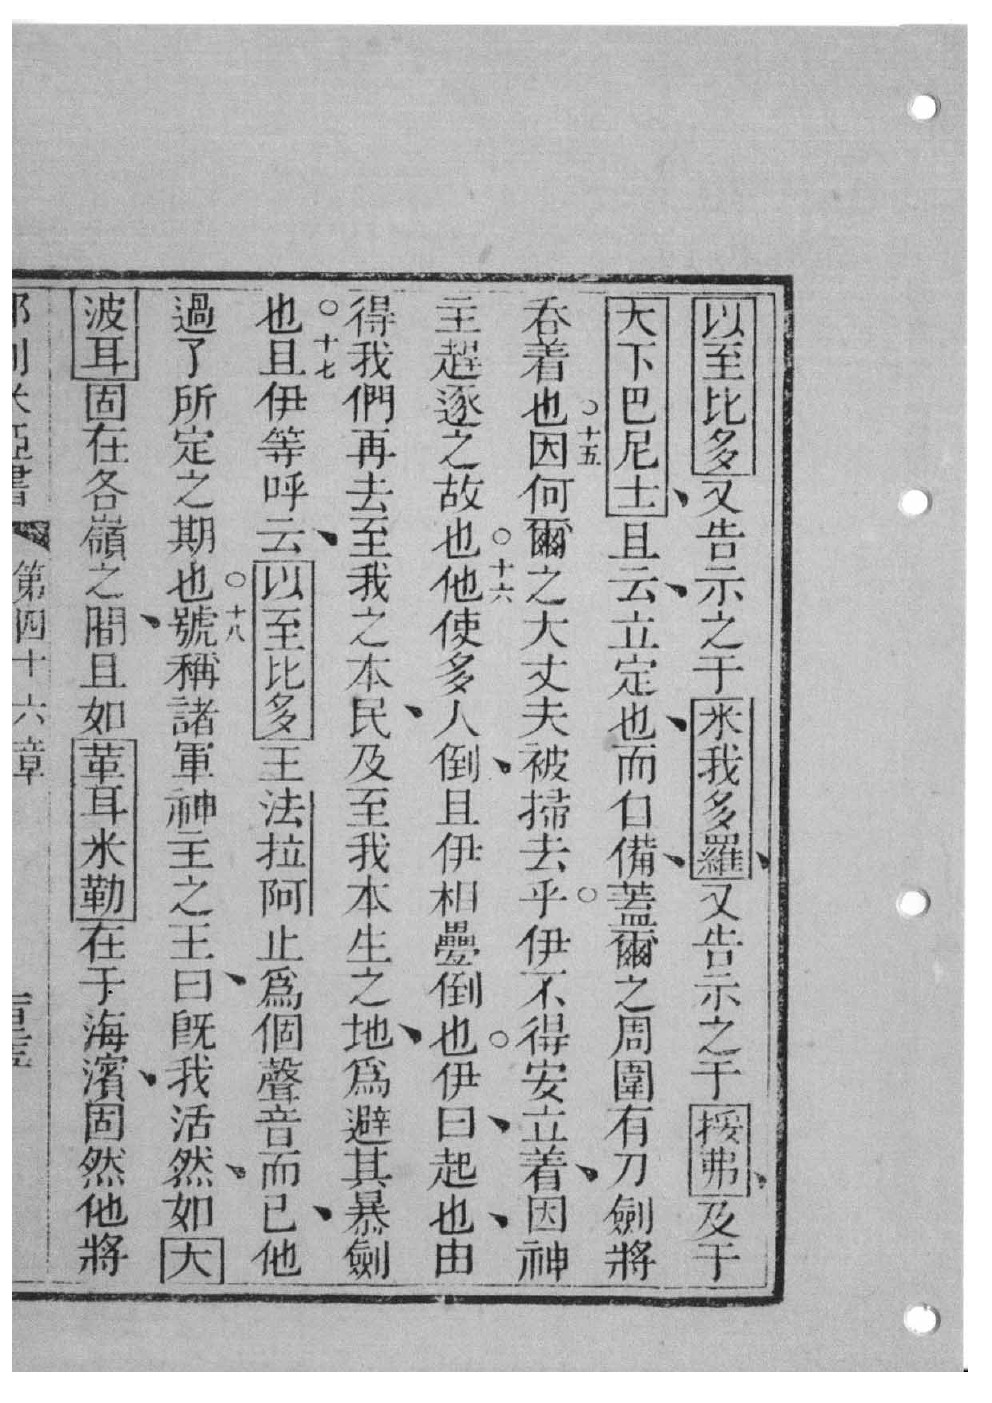 以至比多又告示之于米我多羅又告示之于挼弗及于
大下巴尼士且云立定也而自備蓋爾之周圍有刀劍將
吞着也○十五因何爾之大丈夫被掃去乎○伊不得安立着因神
主趕逐之故也○十六他使多人倒且伊相疊倒也○伊曰起也由
得我們再去至我之本民及至我本生之地爲避其暴劍
也○十七且伊等呼云以至比多王法拉阿止爲個聲音而已他
過了所定之期也○十八號稱諸軍神主之王曰旣我活然如大
波耳固在各嶺之間且如革耳米勒在于海濱固然他將
米亞書 第四十六章